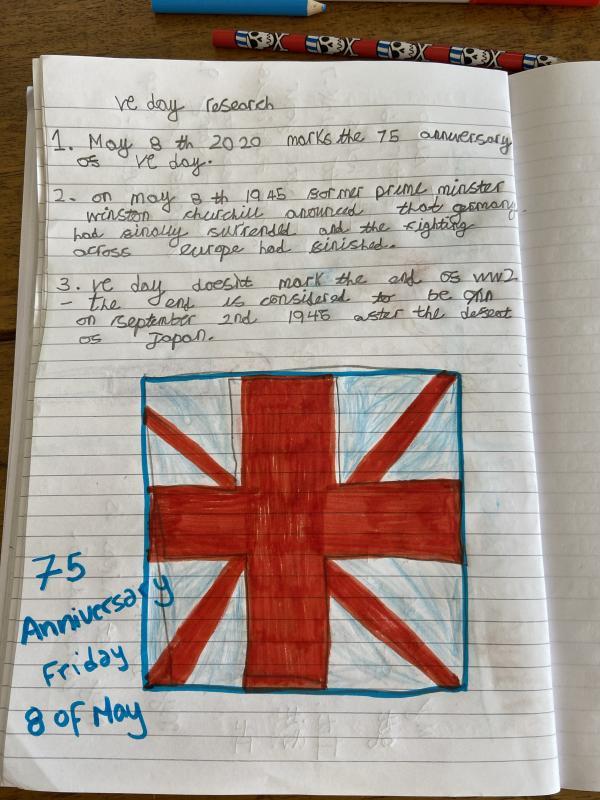 ve day research
1. May 8 th 2020 marks the 75 anniversary
of ve day.
2. on may 8 th 1945 former prime minster
winston churchill anounced that germany
had finally surrended and the fighting
across europe had finished.
3. ve day doesnt mark the end of ww2
- the end is considered to be
on september 2nd 1945 after the defeat
of Japan.
75
Anniversary
Friday
8 of May